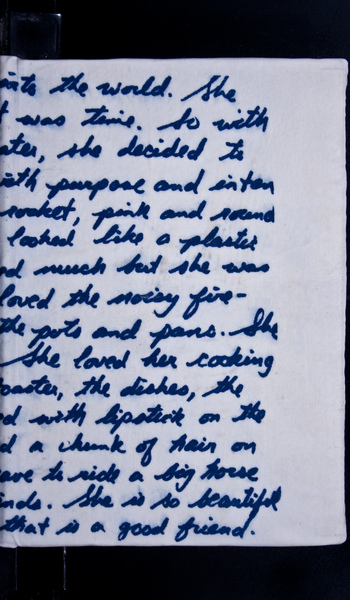 into the world. She
was time. So with
she decided to
with purpose and inten
rocket, pink and round
looked like a plastic
nd much but she was
loved the noisy fire-
the pots and pans. She
She loved her cooking
toaster, the dishes, the
ed with lipstick on the
d a chunk of hair on
ave to ride a big horse
inds. She is so beautiful
that is a good friend.